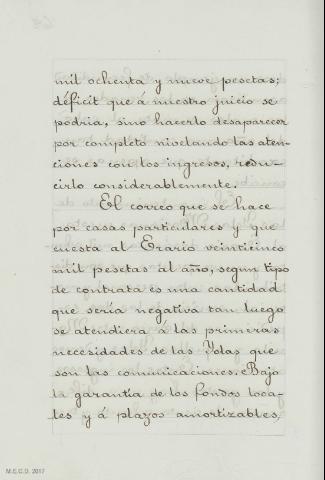 mil ochenta y nueve pesetas;
déficit que á nuestro juicio se
podria, sino hacerlo desaparecer
por completo nivelando las aten-
ciones con los ingresos, redu-
cirlo considerablemente.
El correo que se hace
por casas particulares y que
cuesta al Erario veinticinco
mil pesetas al año, segun tipo
de contrata es una cantidad
que sería negativa tan luego
se atendiera á las primeras
necesidades de las Yslas que
son las comunicaciones. Bajo
la garantía de los fondos loca-
les y á plazos amortizables,
M.E.C.D. 2017